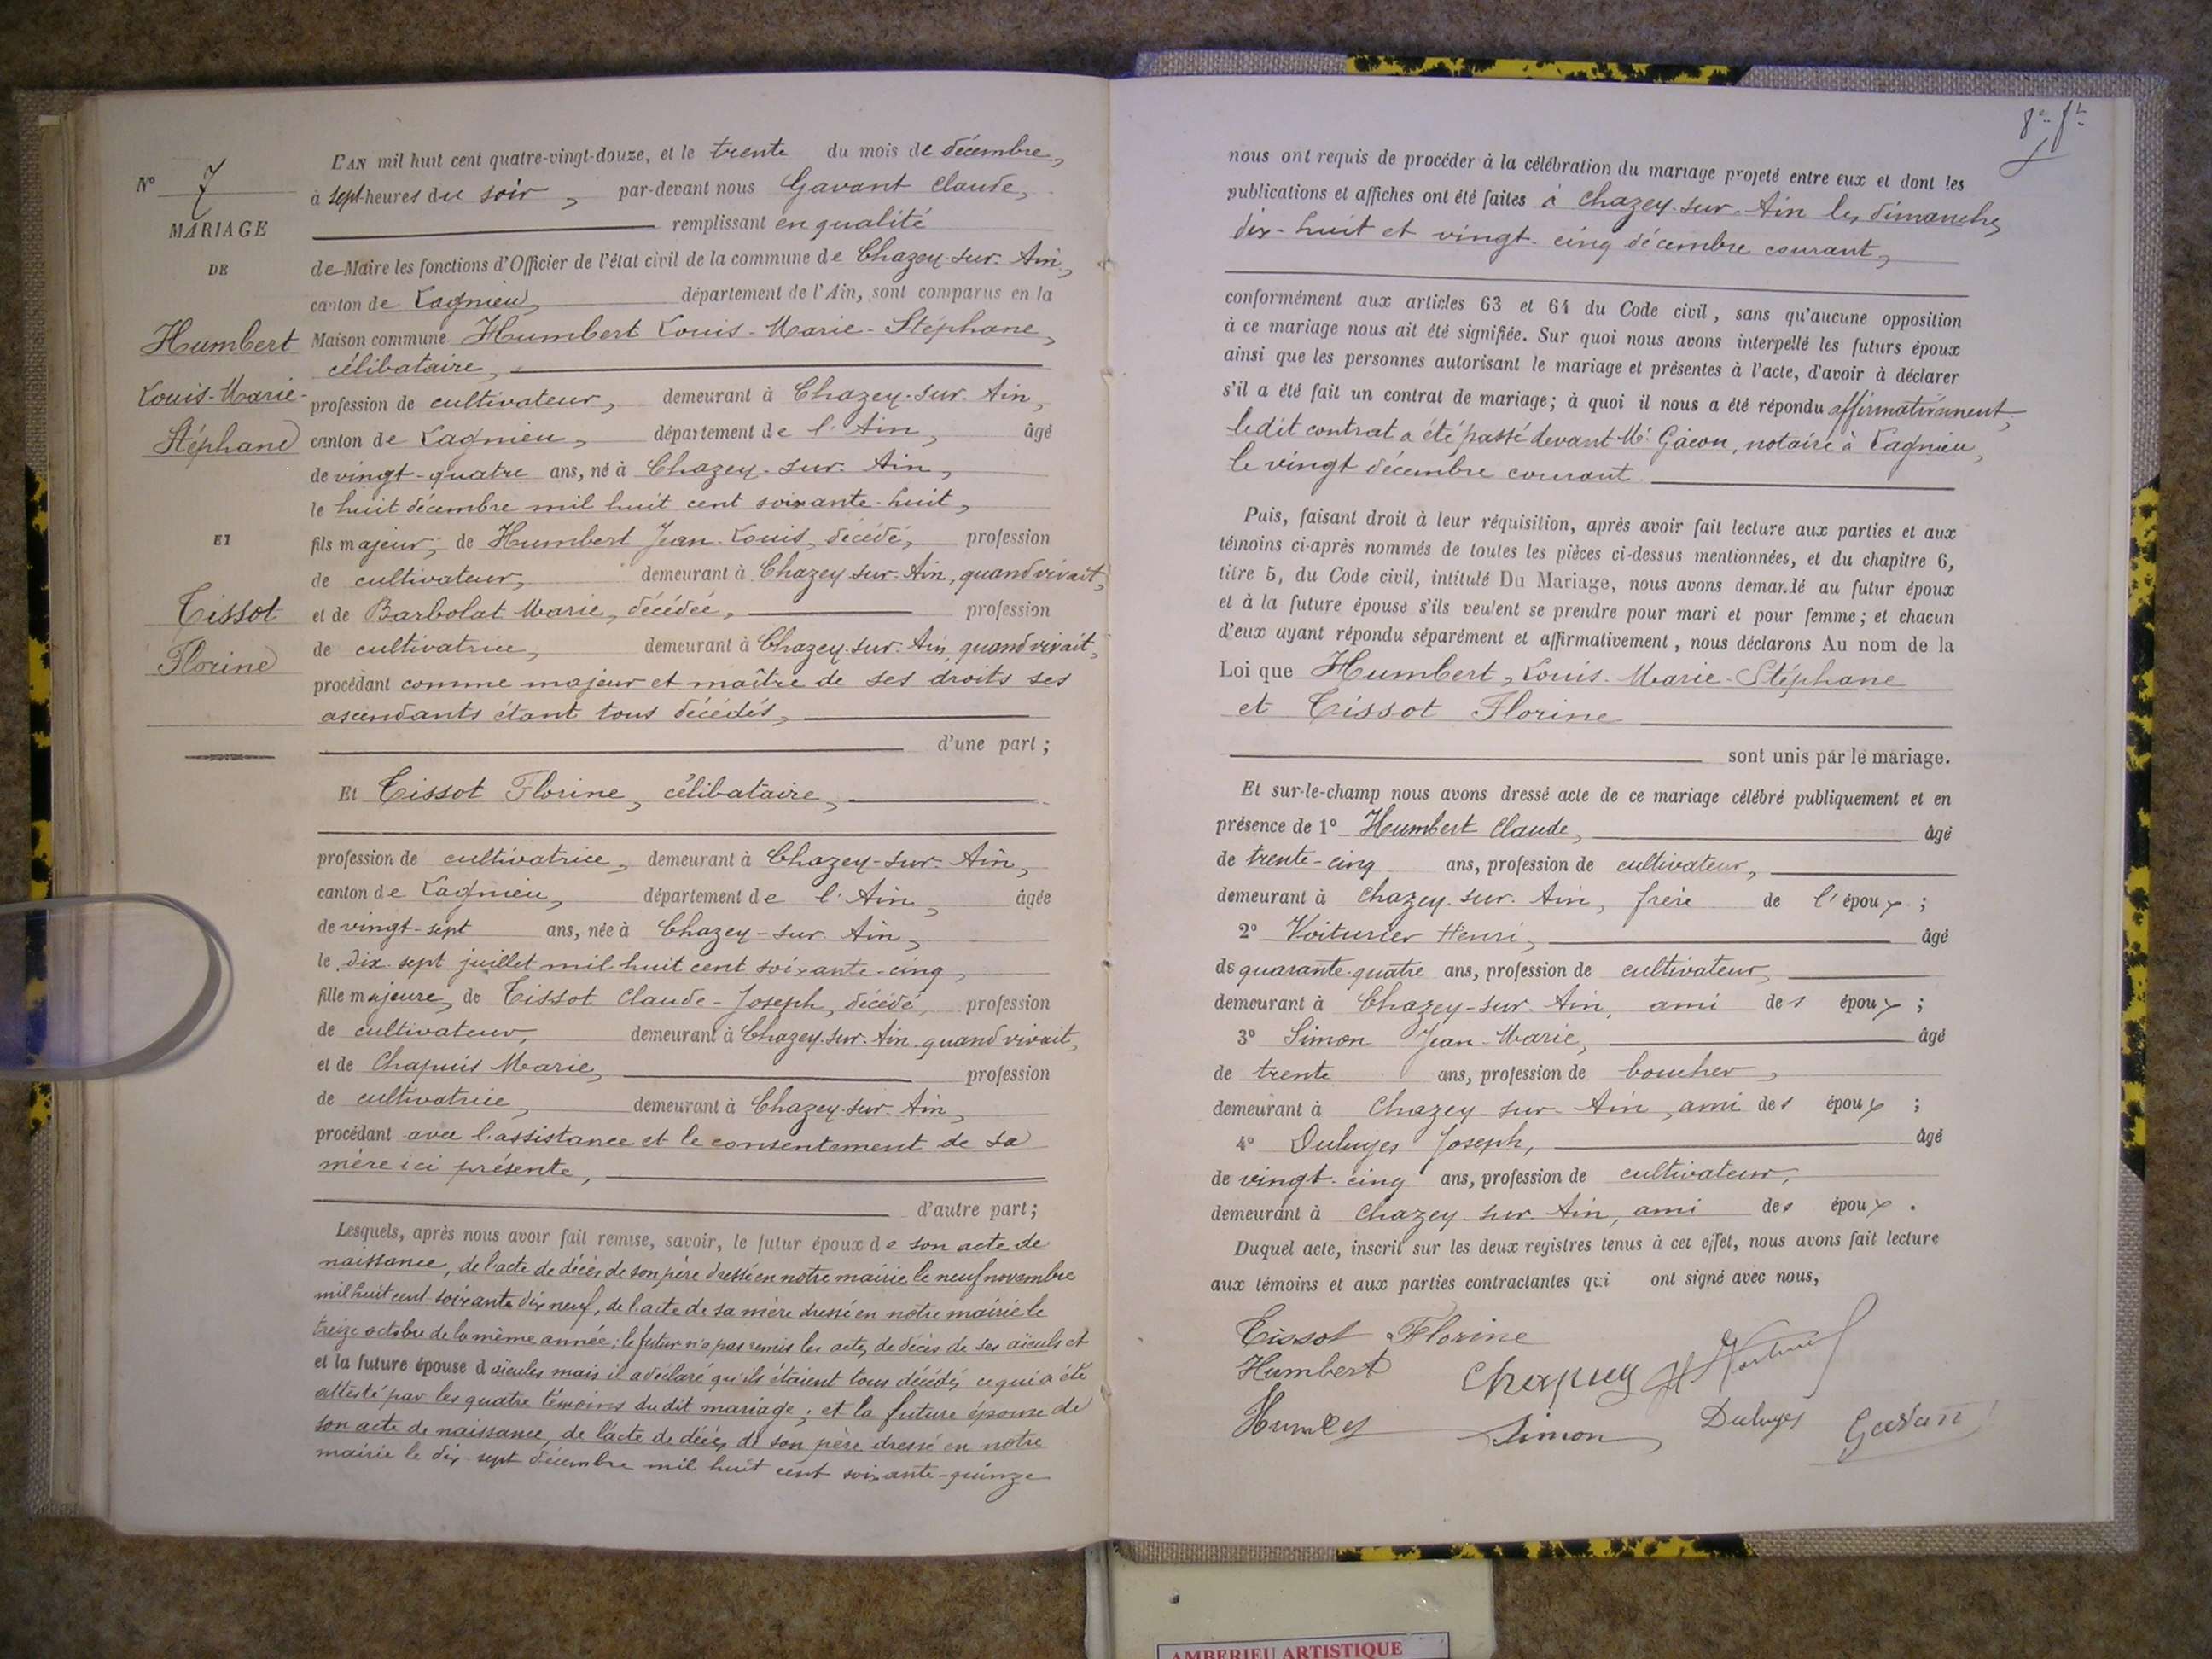 N° 7
MARIAGE
DE
Humbert
Louis-Marie-
Stéphane
ET
Tissot
Florine
L'AN mil huit cent quatre-vingt-douze, et le trente du mois de décembre,
à sept heures du soir, par-devant nous Gavant Claude,
remplissant en qualité
de Maire les fonctions d'Officier de l'état civil de la commune de Chazey-sur-Ain,
canton de Lagnieu, département de l'Ain, sont comparus en la
Maison commune Humbert Louis-Marie-Stéphane,
célibataire,
profession de cultivateur, demeurant à Chazey-sur-Ain,
canton de Lagnieu, département de l'Ain, âgé
de vingt-quatre ans, né à Chazey-sur-Ain,
le huit décembre mil huit cent soixante-huit,
fils majeur, de Humbert Jean-Louis, décédé, profession
de cultivateur, demeurant à Chazey-sur-Ain, quand vivait,
et de Barbolat Marie, décédée, profession
de cultivatrice, demeurant à Chazey-sur-Ain, quand vivait,
procédant comme majeur et maître de ses droits ses
ascendants étant tous décédés,
d'une part;
Et Tissot Florine, célibataire,
profession de cultivatrice, demeurant à Chazey-sur-Ain,
canton de Lagnieu, département de l'Ain, âgée
de vingt-sept ans, née à Chazey-sur-Ain,
le dix-sept juillet mil huit cent soixante-cinq,
fille majeure, de Tissot Claude-Joseph, décédé, profession
de cultivateur, demeurant à Chazey-sur-Ain quand vivait,
et de Chapuis Marie, profession
de cultivatrice, demeurant à Chazey-sur-Ain,
procédant avec l'assistance et le consentement de sa
mère ici présente,
d'autre part;
Lesquels, après nous avoir fait remise, savoir, le futur époux de son acte de
naissance, de l'acte de décès de son père dressé en notre mairie le neuf novembre
mil huit cent soixante dix neuf, de l'acte de sa mère dressé en notre mairie le
treize octobre de la même année; le futur n'a pas remis les actes de décès de ses aïeuls et
et la future épouse d aïeules mais il a déclaré qu'ils étaient tous décédés ce qui a été
attesté par les quatre témoins du dit mariage; et la future épouse de
son acte de naissance, de l'acte de décès de son père dressé en notre
mairie le dix-sept décembre mil huit cent soixante-quinze
nous ont requis de procéder à la célébration du mariage projeté entre eux et dont les
publications et affiches ont été faites à Chazey-sur-Ain les dimanches
dix-huit et vingt-cinq décembre courant,
conformément aux articles 63 et 64 du Code civil, sans qu'aucune opposition
à ce mariage nous ait été signifiée. Sur quoi nous avons interpellé les futurs époux
ainsi que les personnes autorisant le mariage et présentes à l'acte, d'avoir à déclarer
s'il a été fait un contrat de mariage; à quoi il nous a été répondu affirmativement,
ledit contrat a été passé devant Me Gâcon, notaire à Lagnieu,
le vingt décembre courant
Puis, faisant droit à leur réquisition, après avoir fait lecture aux parties et aux
témoins ci-après nommés de toutes les pièces ci-dessus mentionnées, et du chapitre 6,
titre 5, du Code civil, intitulé Du Mariage, nous avons demandé au futur époux
et à la future épouse s'ils veulent se prendre pour mari et pour femme; et chacun
d'eux ayant répondu séparément et affirmativement, nous déclarons Au nom de la
Loi que Humbert, Louis-Marie-Stéphane
et Tissot Florine
sont unis par le mariage.
Et sur-le-champ nous avons dressé acte de ce mariage célébré publiquement et en
présence de 1° Humbert Claude, âgé
de trente-cinq ans, profession de cultivateur,
demeurant à Chazey-sur-Ain, frère de l'époux;
2° Voiturier Henri, âgé
de quarante-quatre ans, profession de cultivateur,
demeurant à Chazey-sur-Ain, ami des époux;
3° Simon Jean-Marie, âgé
de trente ans, profession de boucher,
demeurant à Chazey-sur-Ain, ami des époux;
4° Duluyes Joseph, âgé
de vingt-cinq ans, profession de cultivateur,
demeurant à Chazey-sur-Ain, ami des époux.
Duquel acte, inscrit sur les deux registres tenus à cet effet, nous avons fait lecture
aux témoins et aux parties contractantes qui ont signé avec nous,
Tissot Florine
Humbert
Simon Duluyes Gavant
AMBERIEU ARTISTIQUE